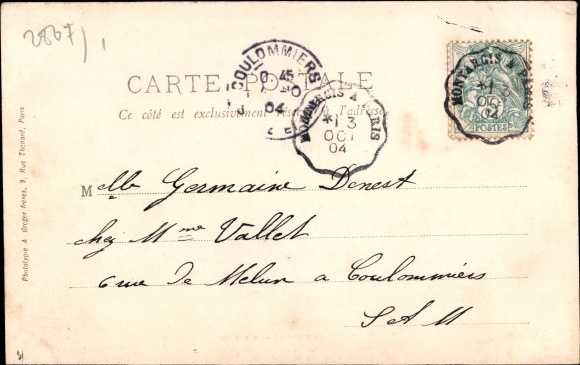 2867/1
COULOMMIERS
045
04
CARTE POSTALE
Ce côté est exclusivement réservé à l'adresse
MONTARGIS A PARIS
*13
OCT
04
MONTARGIS A PARIS
*13
OCT
04
POSTES
Melle Germaine Denest
chez Mme Vallet
6 rue de Melun a Coulommiers
S A M
Phototypie A Breger frères, 9, Rue Thénard, Paris